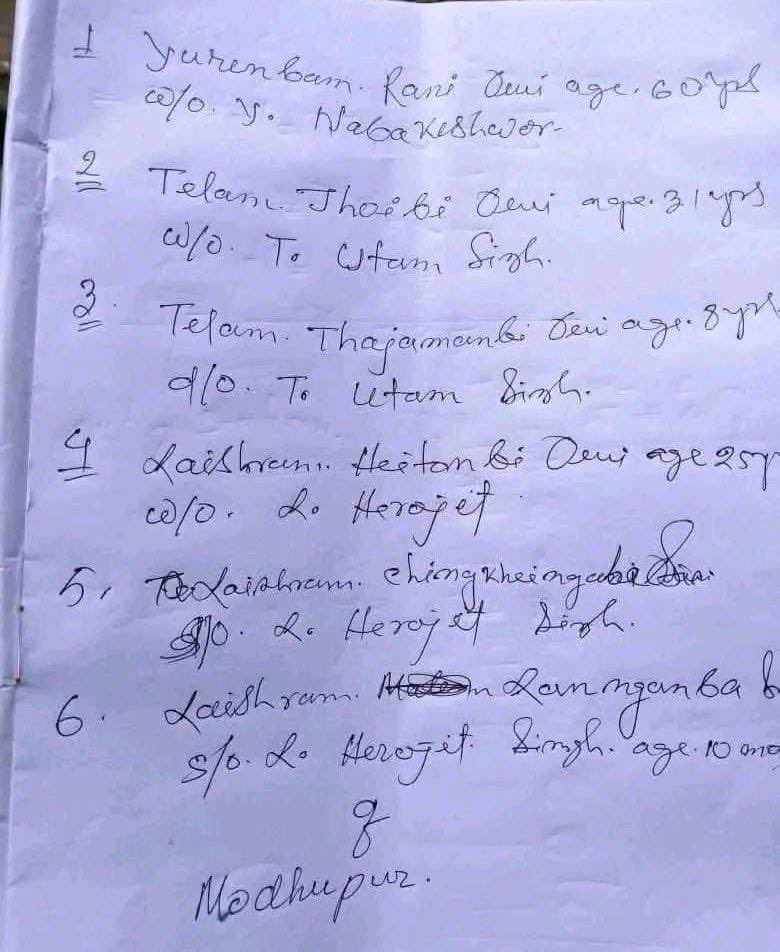 1 Yurenbam. Rani Devi age. 60 yrs
w/o. Y. Nabakeshwor-
2 Telam. Thoibi Devi age. 31 yrs
w/o. T. Utam Sigh.
3. Telam. Thajamanbi Devi age. 8 yrs
d/o. T. Utam Singh.
4 Laishram. Heitonbi Devi age 25 y
w/o. L. Herojet
5, Laishram. Chingkheinganba
s/o. L. Herojet Sigh.
6. Laishram. Lannganba
s/o. L. Herojit. Singh. age. 10 mo
of
Modhupur.